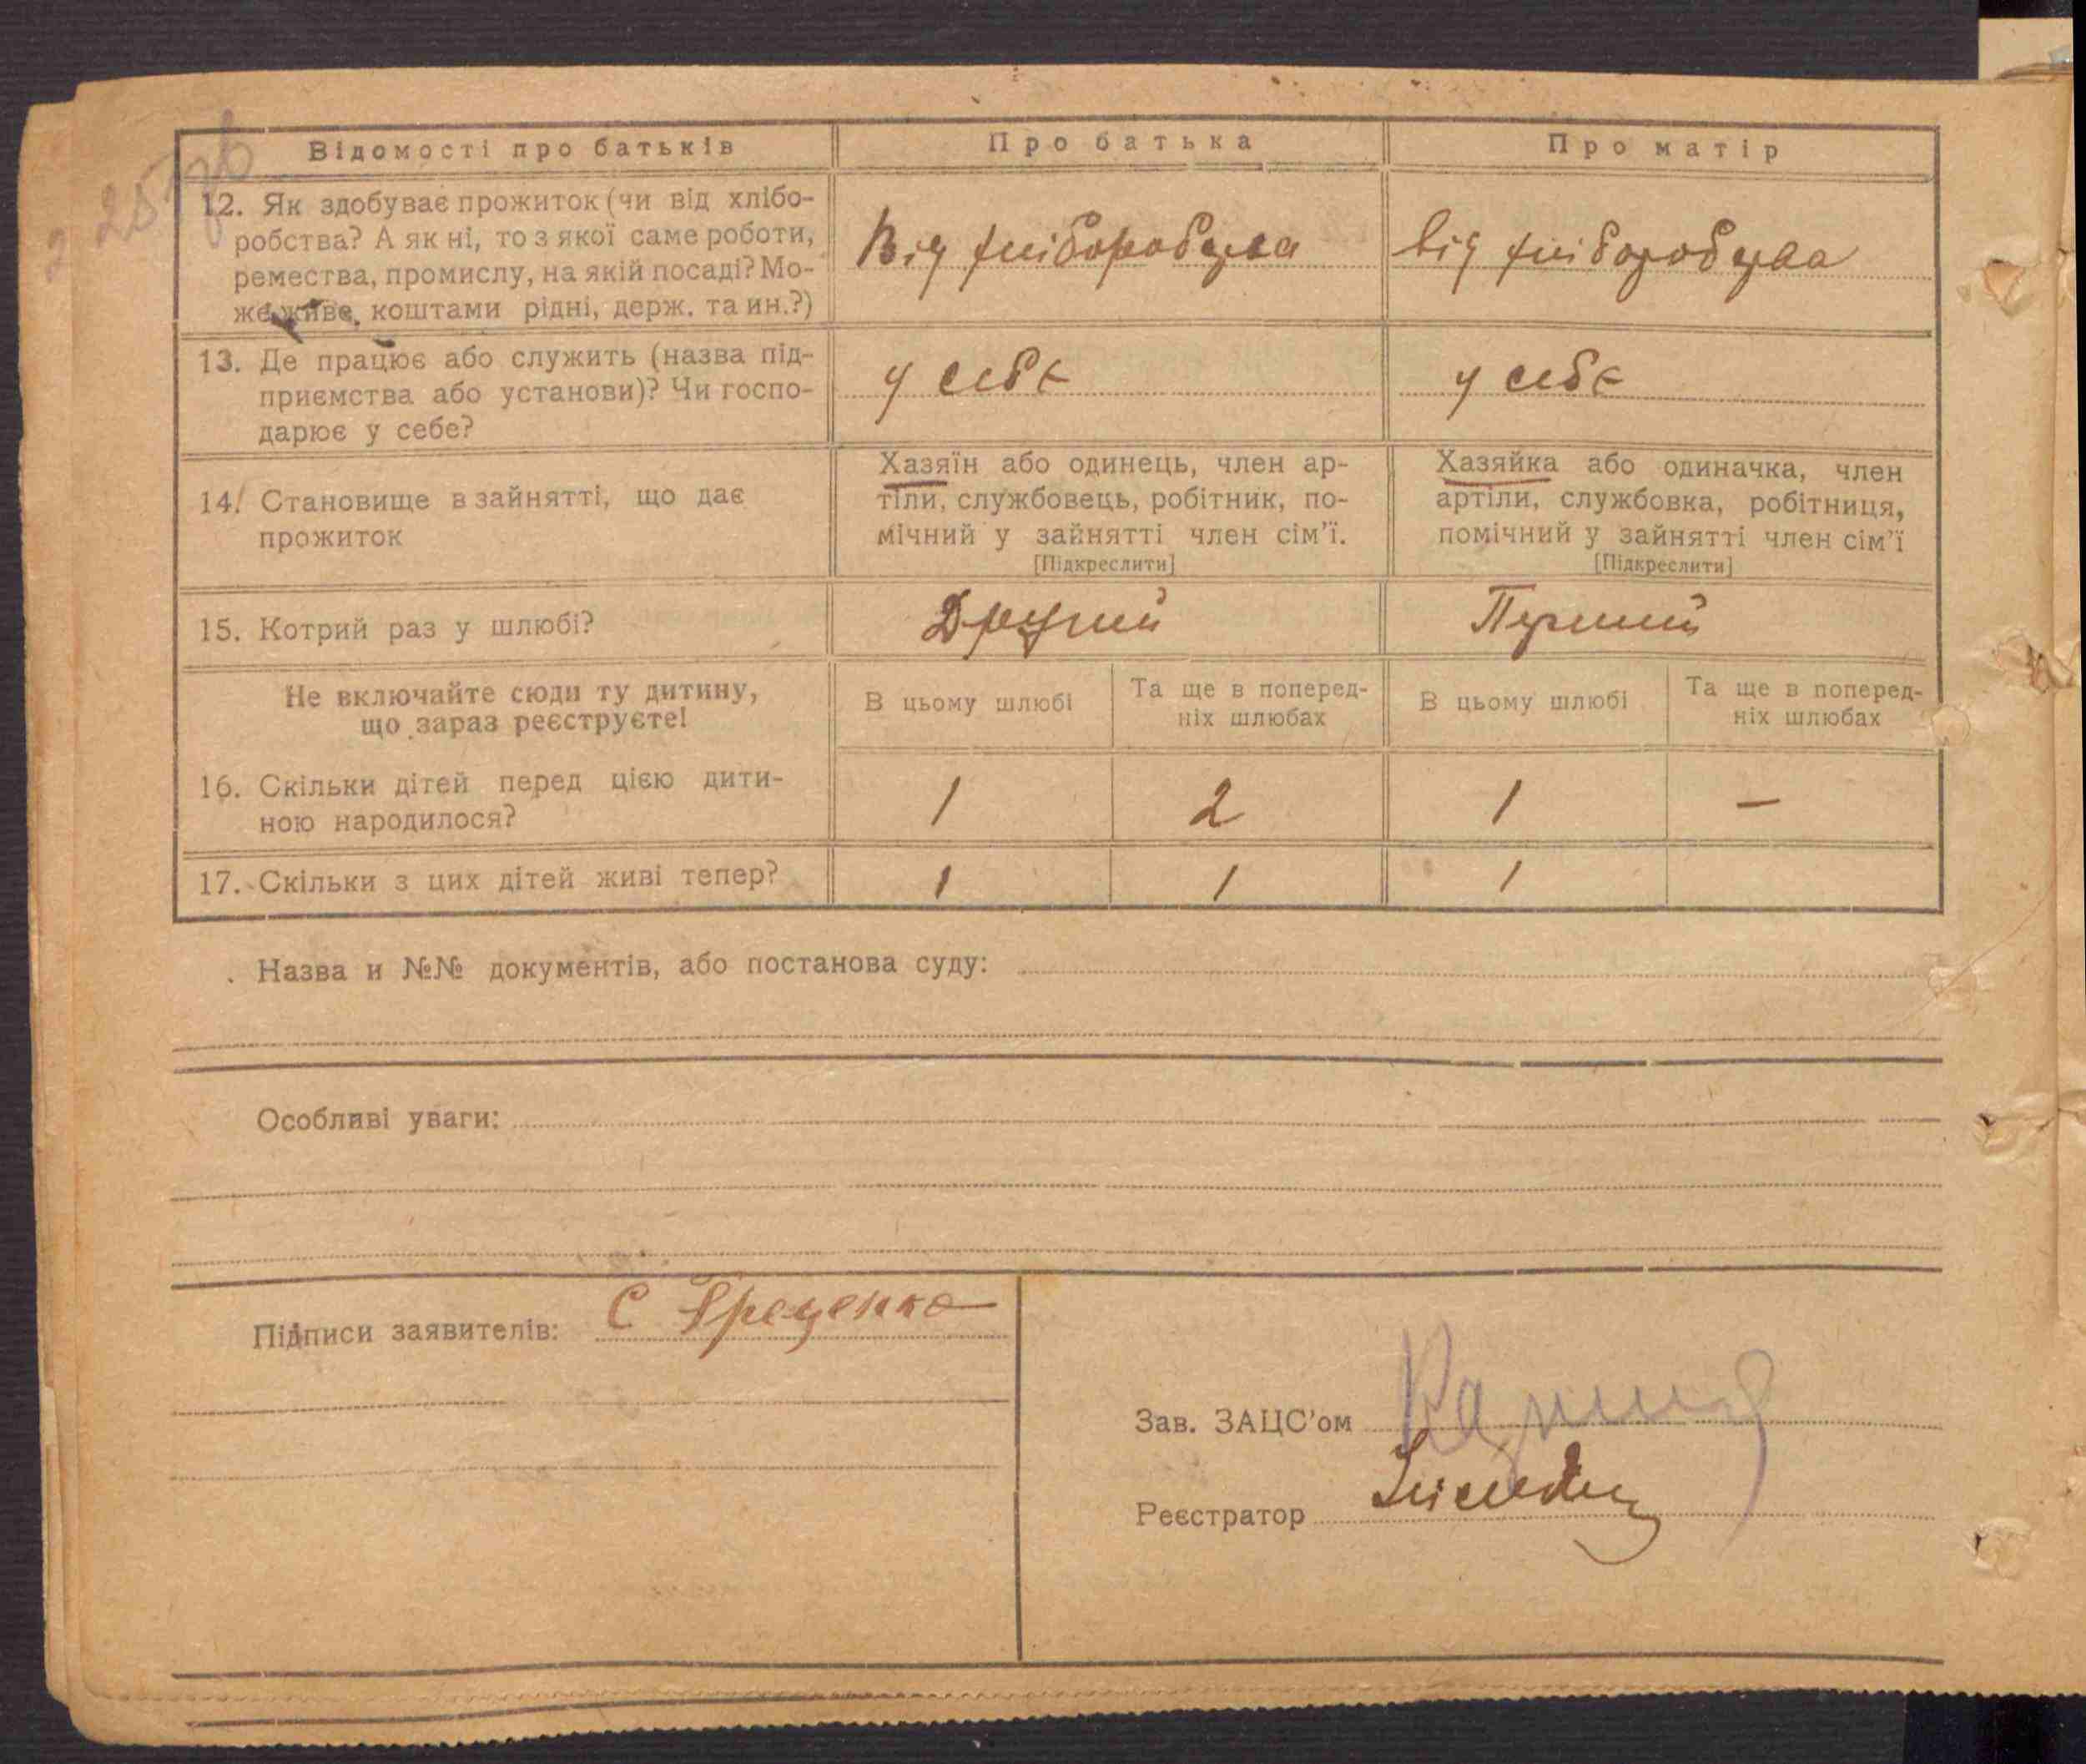 Відомості про батьків
Про батька
Про матір
12. Як здобуває прожиток (чи від хлібо-
робства? А як ні, то з якої саме роботи,
ремества, промислу, на якій посаді? Мо-
же живе, коштами рідні, держ. та ин.?)
Від хліборобства
від хліборобства
13. Де працює або служить (назва під-
приємства або установи)? Чи госпо-
дарює у себе?
у себе
у себе
14. Становище в зайнятті, що дає
прожиток
Хазяїн або одинець, член ар-
тіли, службовець, робітник, по-
мічний у зайнятті член сім'ї.
[Підкреслити]
Хазяйка або одиначка, член
артіли, службовка, робітниця,
помічний у зайнятті член сім'ї
[Підкреслити]
15. Котрий раз у шлюбі?
Другий
Перший
Не включайте сюди ту дитину,
що зараз реєструєте!
В цьому шлюбі
Та ще в поперед-
ніх шлюбах
В цьому шлюбі
Та ще в поперед-
ніх шлюбах
16. Скільки дітей перед цією дити-
ною народилося?
1
2
1
—
17. Скільки з цих дітей живі тепер?
1
1
1
Назва и №№ документів, або постанова суду:
Особливі уваги:
Підписи заявителів: С
Зав. ЗАЦС'ом
Реєстратор